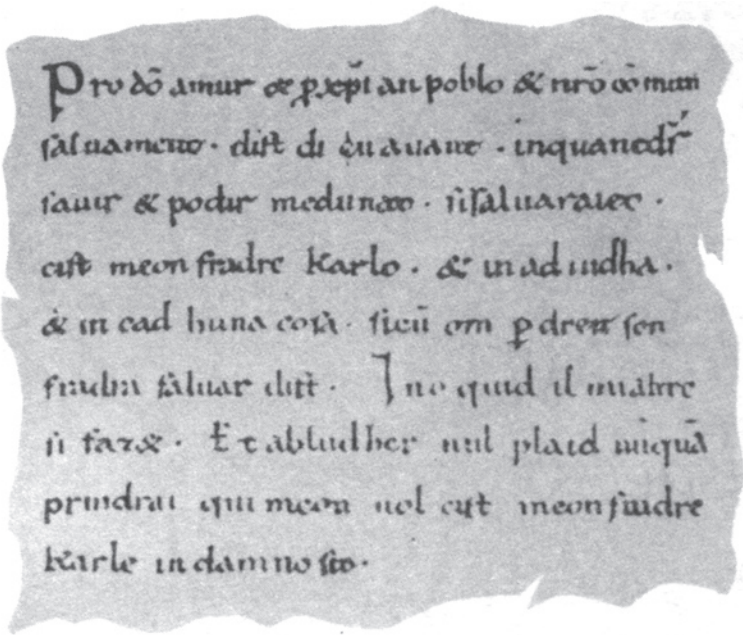 Pro dõ amur & p xp̃ian poblo & nr̃o cõmun
saluament. dist di en auant. inquantdš
sauir & podir medunat. sisaluaraieo.
cist meon fradre Karlo. & in adiudha.
& in cad huna cosa. sicũ om p dreit son
fradra saluar dift. Ino quid il mialtre
si faz&. Et abludher nul plaid nũquã
prindrai qui meon uol cist meonfradre
Karle in damno sit.